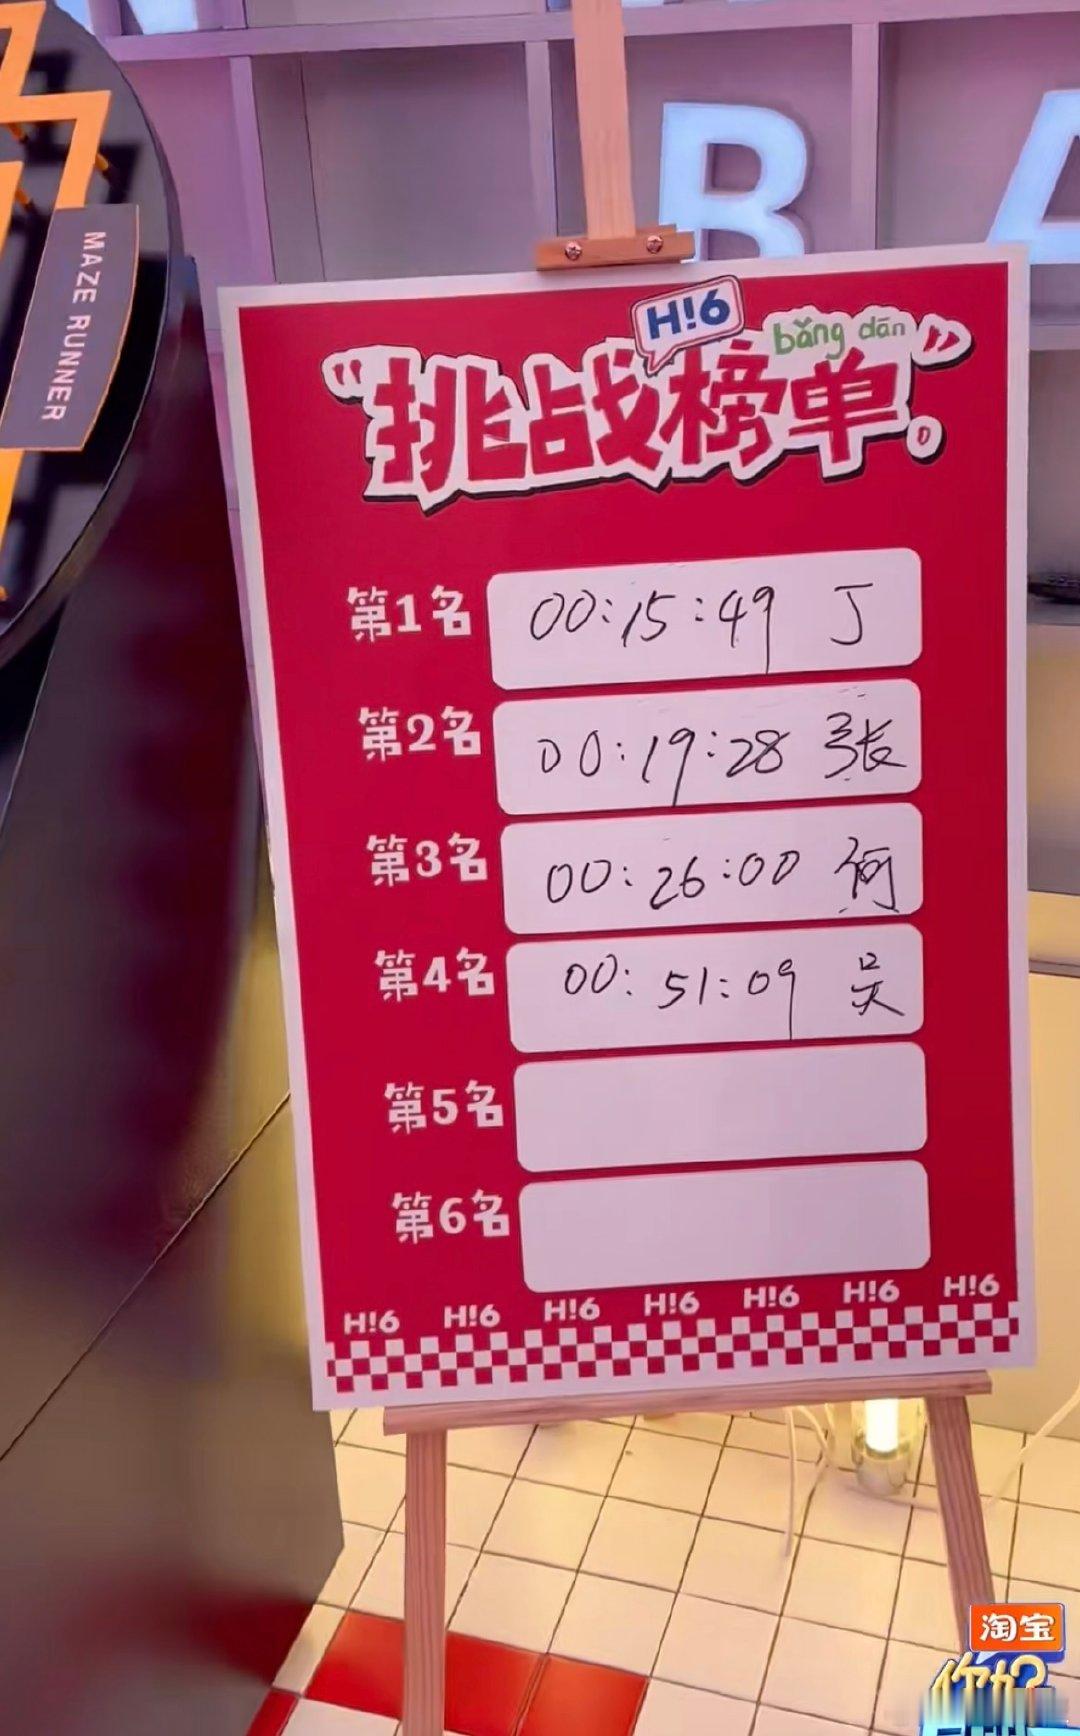 B A
MAZE RUNNER
H!6
bǎng dān
“挑战榜单”。
第1名 00:15:49 丁
第2名 00:19:28 张
第3名 00:26:00 何
第4名 00:51:09 吴
第5名
第6名
H!6 H!6 H!6 H!6 H!6 H!6 H!6
淘宝